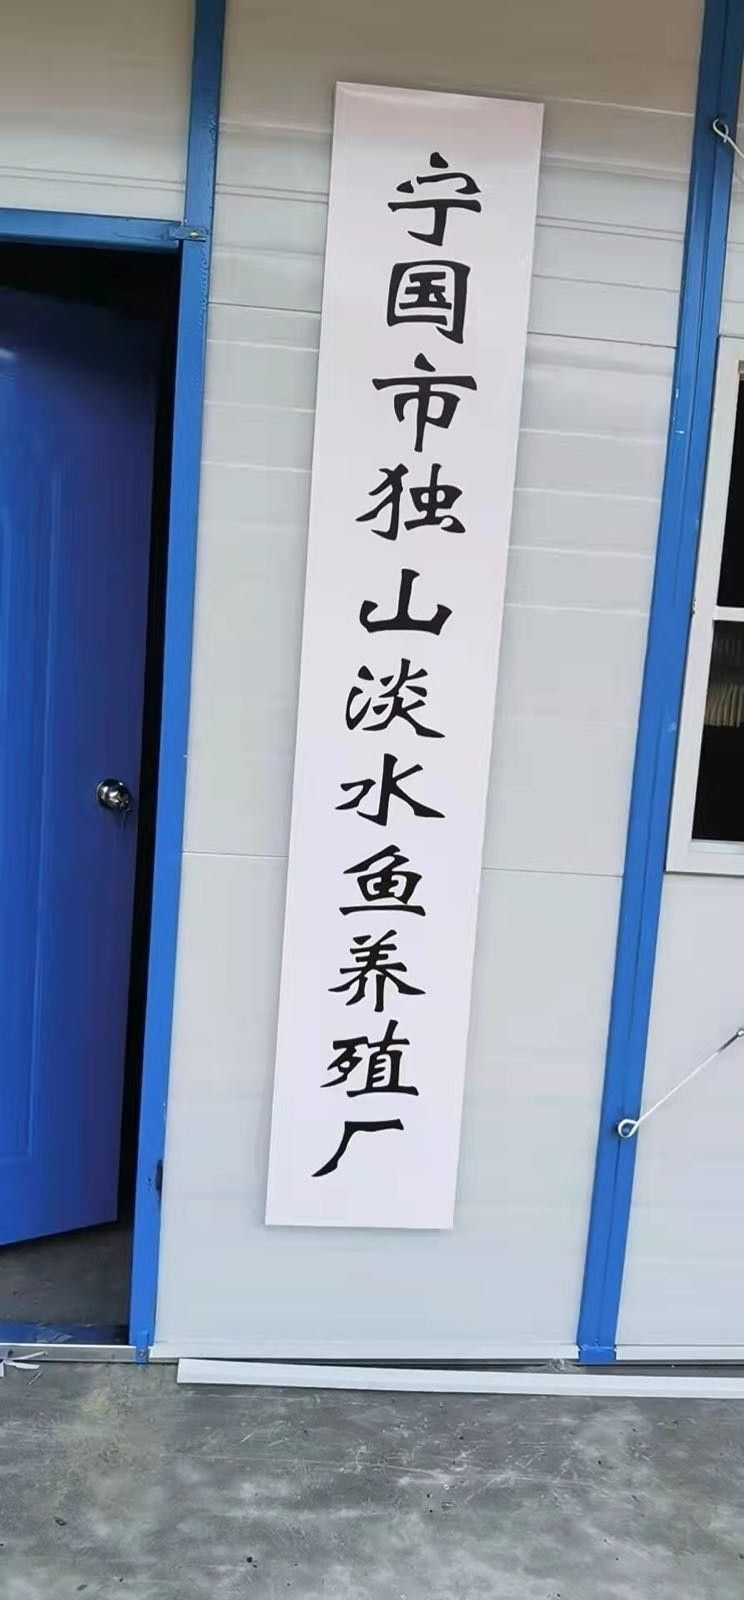 宁国市独山淡水鱼养殖厂